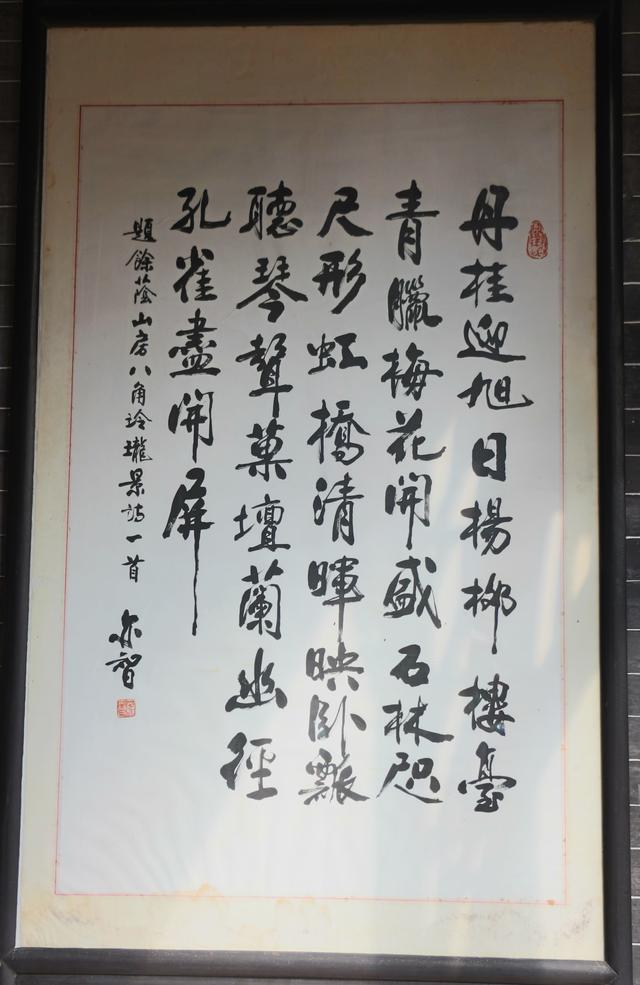 丹桂迎旭日楊柳樓臺
青臘梅花開盛石林咫
尺形虹橋清暉映卧瓢
聽琴聲菓壇蘭幽徑
孔雀盡開屏
題餘蔭山房八角玲瓏景詩一首
亦智